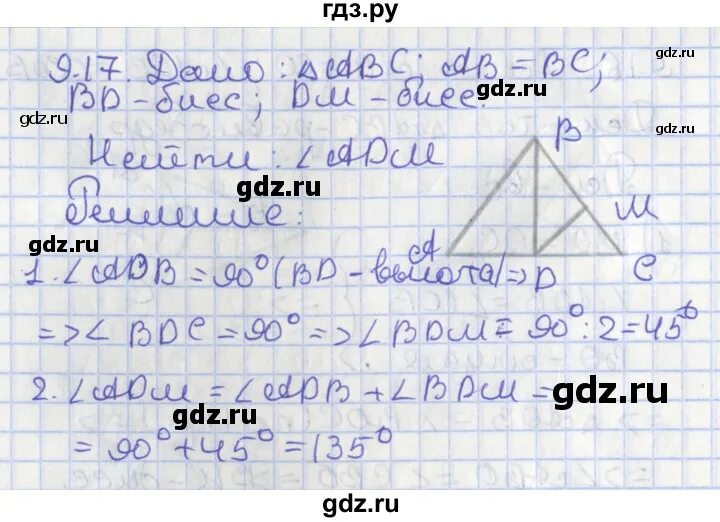 гдз.ру
9.17. Дано: △ABC; AB = BC;
BD - биес; DM - биес.
gdz.ru
gdz.ru
Найти: ∠ADM
gdz.ru
Решение:
B
M
A
D
C
gdz.ru
1. ∠ADB = 90° (BD - высота) =>
=> ∠BDC = 90° => ∠BDM = 90° : 2 = 45°
2. ∠ADM = ∠ADB + ∠BDM =
gdz.ru
gdz.ru
= 90° + 45° = 135°
gdz.ru
gdz.ru